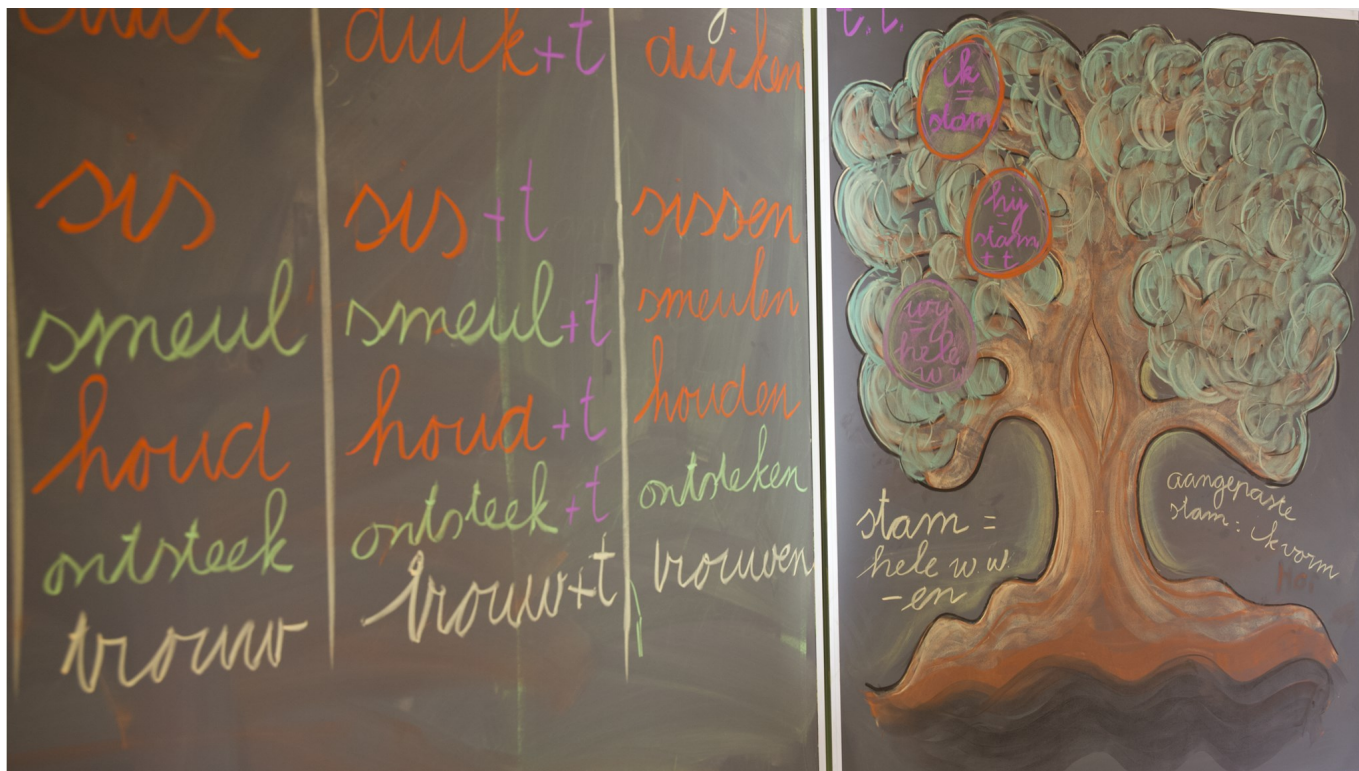 duik duik+t duiken
sis sis+t sissen
smeul smeul+t smeulen
houd houd+t houden
ontsteek ontsteek+t ontsteken
trouw trouw+t trouwen
t.t.
ik
=
stam
hij
=
stam
+ t
wij
=
hele
w w
stam =
hele w w.
- en
aangepaste
stam: ik vorm
hoi